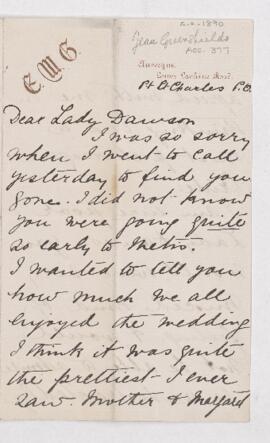 c.a. 1890
Jean Greenshields
Acc. 377
E.M.G.
Pt St Charles P.O.
Dear Lady Dawson
I was so sorry
when I went to call
yesterday to find you
gone. I did not know
you were going quite
so early to Metis.
I wanted to tell you
how much we all
enjoyed the wedding
I think it was quite
the prettiest I ever
saw. Mother & Margaret